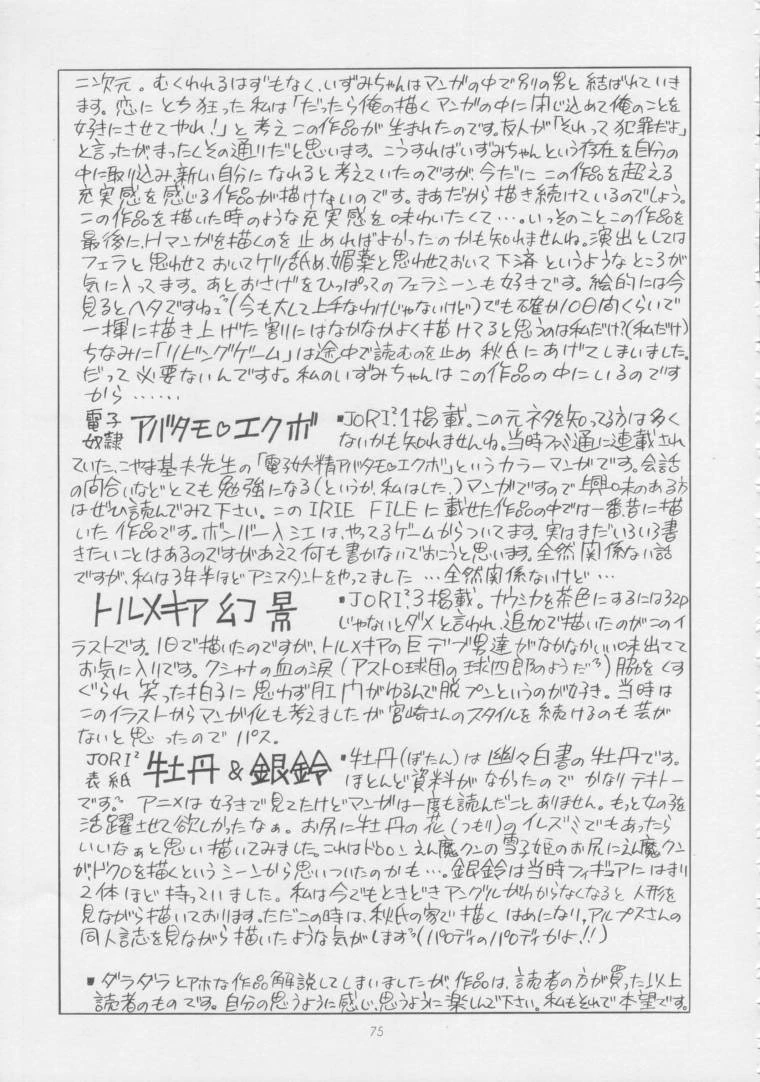 二次元。むくわれるはずもなく、いずみちゃんはマンガの中で別の男と結ばれていき
ます。恋にとち狂った私は「だったら俺の描くマンガの中に閉じ込めて俺のことを
好きにさせてやれ!」と考えこの作品が生まれたのです。友人が「それって犯罪だよ」
と言ったが、まったくその通りだと思います。こうすればいずみちゃんという存在を自分の
中に取り込み、新しい自分になれると考えていたのですが、今だにこの作品を超える
充実感を感じる作品が描けないのです。まあだから描き続けているのでしょう。
この作品を描いた時のような充実感を味わいたくて…。いっそのことこの作品を
最後に、Hマンガを描くのを止めればよかったのかも知れませんね。演出としては
フェラと思わせておいてケツ舐め、媚薬と思わせておいて下済というようなところが
気に入ってます。あとおさげをひっぱってのフェラシーンも好きです。絵的には今
見るとヘタですねェ(今も大して上手なわけじゃないけど)でも確か10日間くらいで
一揮に描き上げた割にはなかなかよく描けてると思うのは私だけ?(私だけ)
ちなみに「リビングゲーム」は途中で読むのを止め秋氏にあげてしまいました。
だって必要ないんですよ。私のいずみちゃんはこの作品の中にいるのです
から……
電子奴隷 アバタモ♡エクボ ▪JORI²1掲載。この元ネタを知ってる方は多く
ないかも知れませんね。当時ファミ通に連載され
ていた、こやま基夫先生の「電子妖精アバタモ♡エクボ」というカラーマンガです。会話
の間合いなどとても勉強になる(というか、私はした。)マンガですので興味のある方
はぜひ読んでみて下さい。このIRIE FILEに載せた作品の中では一番昔に描
いた作品です。ボンバー入江は、やってるゲームからついてます。実はまだいろいろ書
きたいことはあるのですがあえて何も書かないでおこうと思います。全然関係ない話
ですが、私は3年半ほどアシスタントをやってました…全然関係ないけど…
トルメキア幻景 ▪JORI²3掲載。ナウシカを茶色にするには32p
じゃないとダメと言われ、追加で描いたのがこのイ
ラストです。1日で描いたのですが、トルメキアの巨デブ男達がなかなかいい味出てて
お気に入りです。クシャナの血の涙(アストロ球団の球四郎のようだ)脇をくす
ぐられ笑った拍子に思わず肛門がゆるんで脱プンというのが好き。当時は
このイラストからマンガ化も考えましたが宮崎さんのスタイルを続けるのも芸が
ないと思ったのでパス。
JORI²表紙 牡丹&銀鈴 ▪牡丹(ぼたん)は幽々白書の牡丹です。
ほとんど資料がなかったのでかなりテキトー
です。アニメは好きで見てたけどマンガは一度も読んだことありません。もっと女の子を
活躍させて欲しかったなぁ。お尻に牡丹の花(つもり)のイレズミでもあったら
いいなぁと思い描いてみました。これはドロロンえん魔クンの雪子姫のお尻にえん魔クン
がドクロを描くというシーンから思いついたのかも…。銀鈴は当時フィギュアにはまり
2体ほど持っていました。私は今でもときどきアングルがわからなくなると人形を
見ながら描いております。ただこの時は、秋氏の家で描くはめになり、アルプスさんの
同人誌を見ながら描いたような気がします(パロディのパロディかよ!!)
▪ダラダラとアホな作品解説してしまいましたが、作品は、読者の方が買った以上
読者のものです。自分の思うように感じ、思うように楽しんで下さい。私もそれで本望です。
75